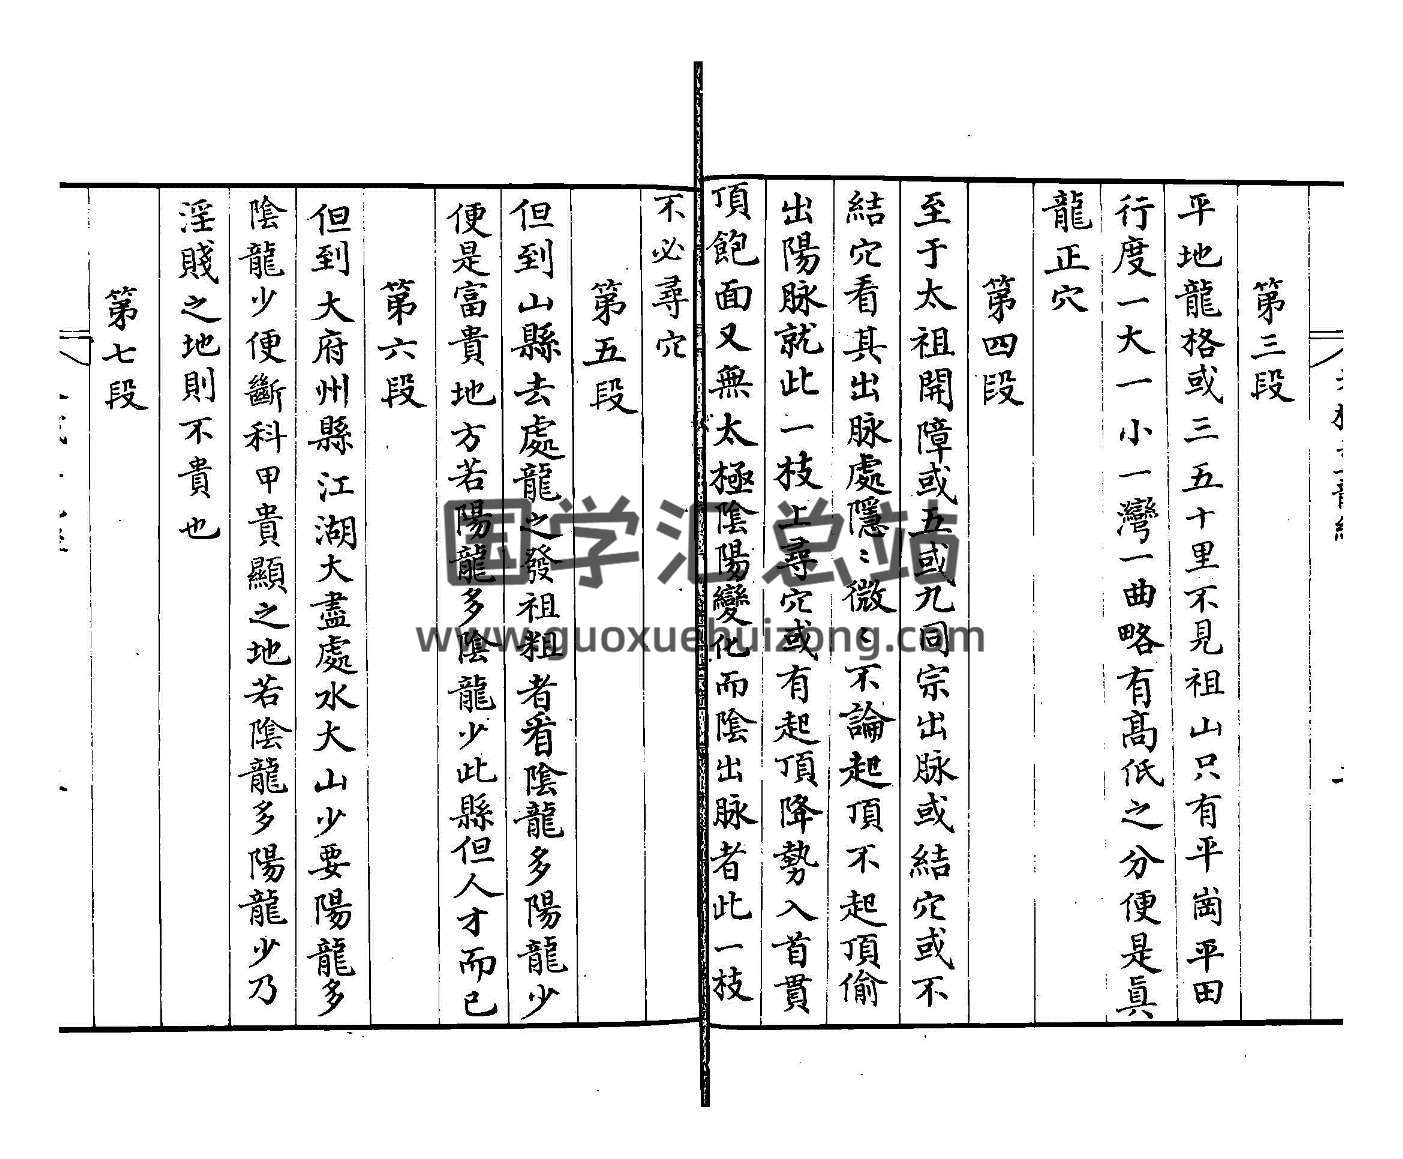 第三段
平地龍格或三五十里不見祖山只有平崗平田
行度一大一小一灣一曲略有高低之分便是眞
龍正穴
第四段
至于太祖開障或五或九同宗出脉或結穴或不
結穴看其出脉處隱〻微〻不論起頂不起頂偷
出陽脉就此一枝上尋穴或有起頂降勢入首貫
頂飽面又無太極陰陽變化而陰出脉者此一枝
不必尋穴
第五段
但到山縣去處龍之發祖粗者看陰龍多陽龍少
便是富貴地方若陽龍多陰龍少此縣但人才而已
第六段
但到大府州縣江湖大盡處水大山少要陽龍多
陰龍少便斷科甲貴顯之地若陰龍多陽龍少乃
淫賤之地則不貴也
第七段
国学汇总站
www.guoxuehuizong.com